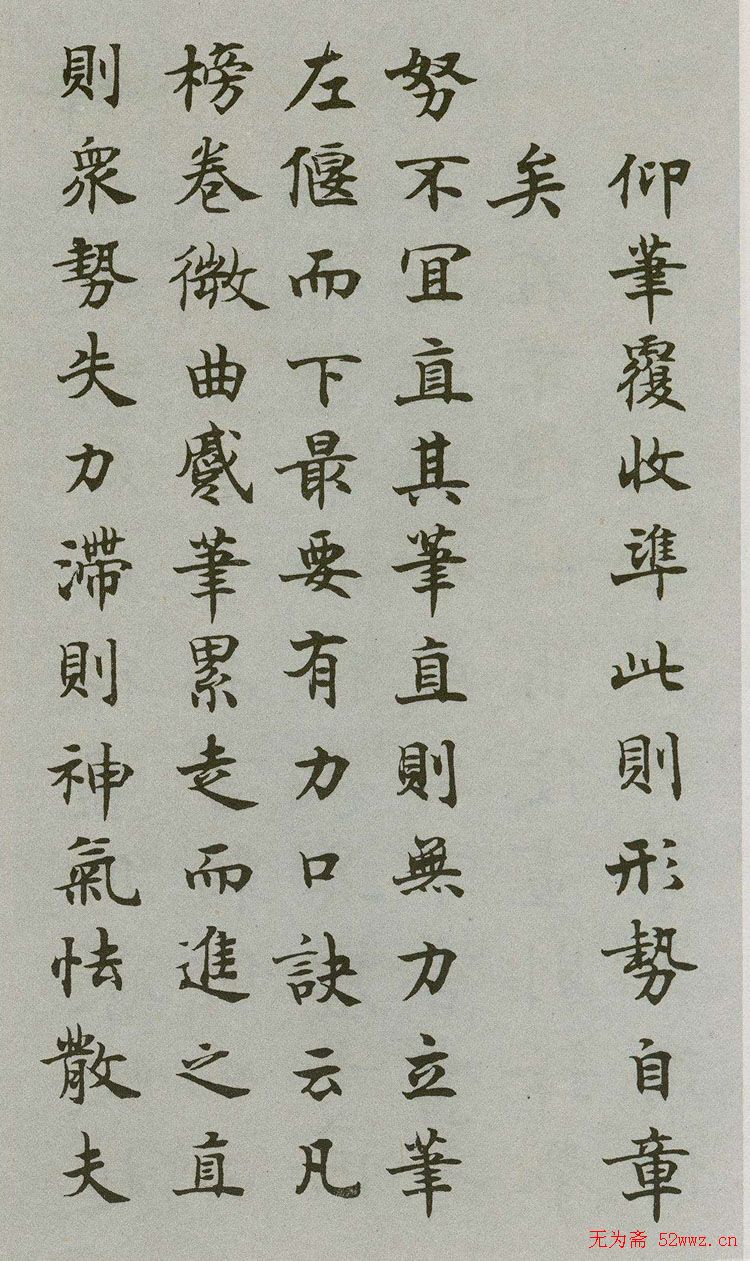 仰筆覆收準此則形勢自章
矣
努不宜直其筆直則無力立筆
左偃而下最要有力口訣云凡
榜卷微曲蹙筆累走而進之直
則衆勢失力滯則神氣怯散夫
无为斋 52wwz.cn